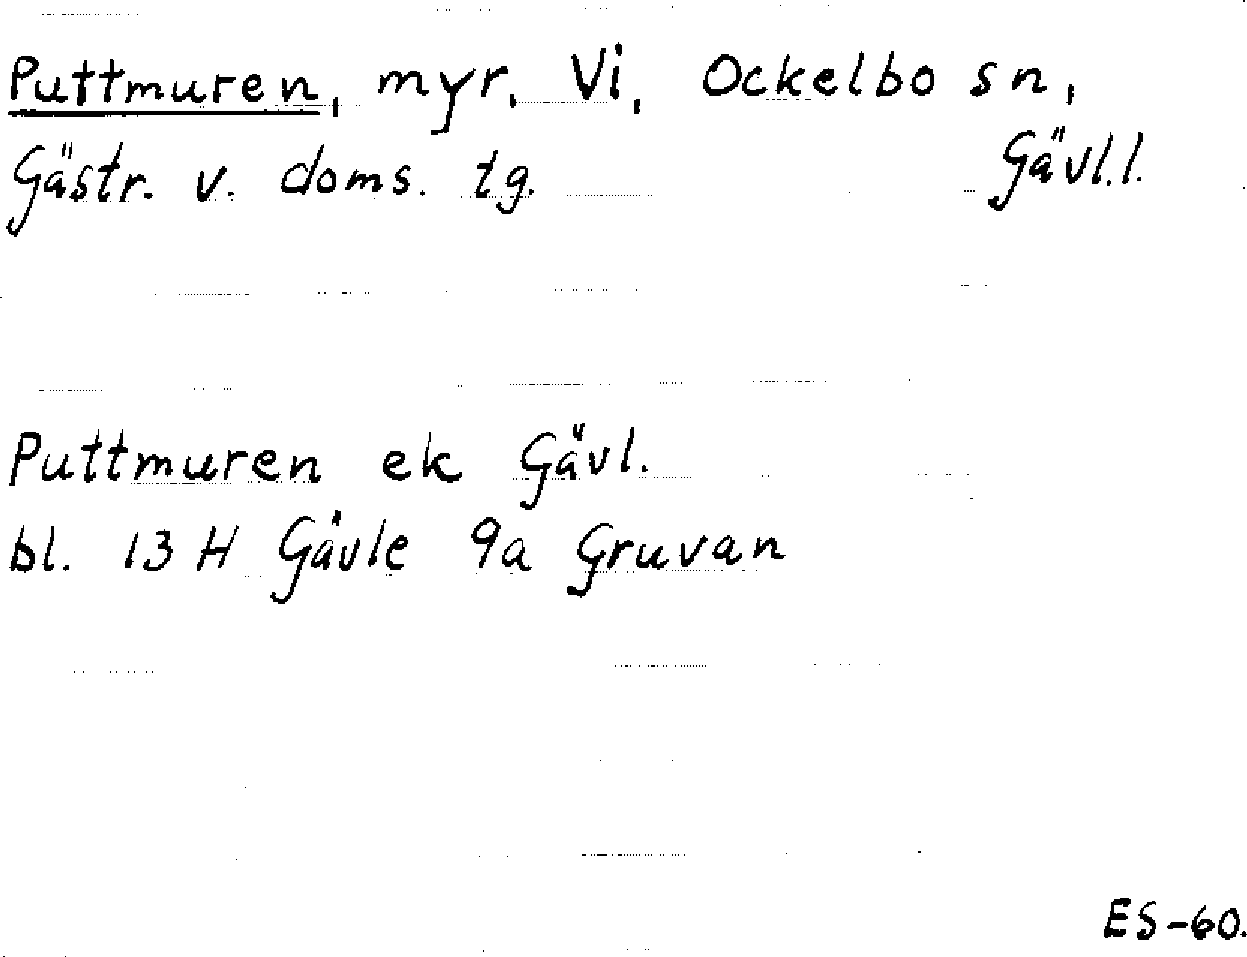 Puttmuren, myr, Vi, Ockelbo sn,
Gästr. v. doms. tg. Gävl.l.
Puttmuren ek Gävl.
bl. 13 H Gävle 9a Gruvan
ES-60.